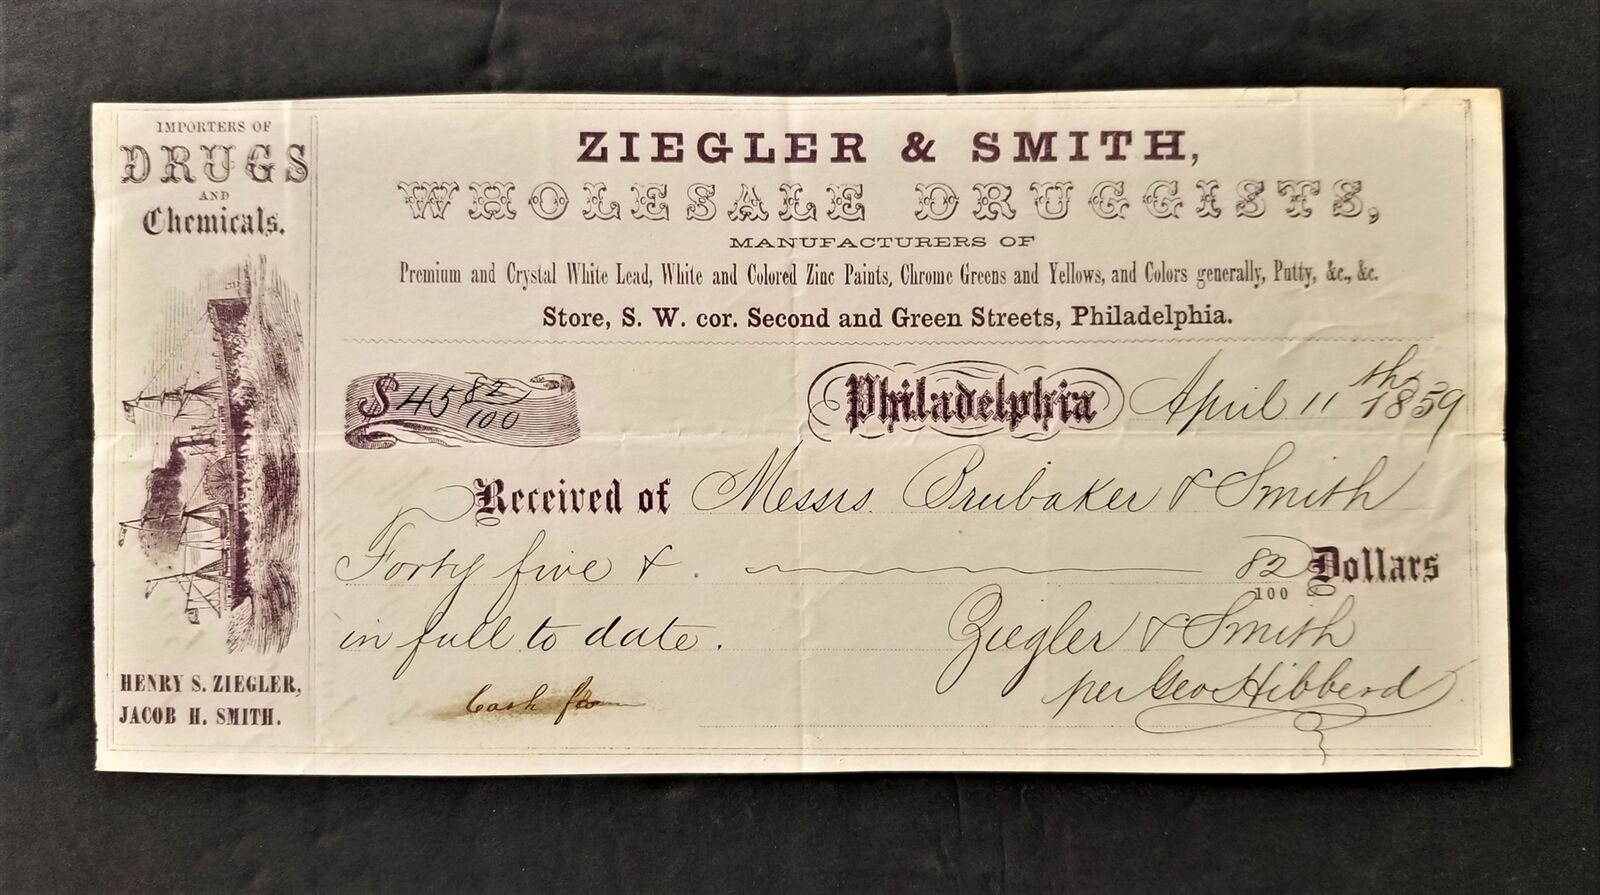 IMPORTERS OF
DRUGS
AND
Chemicals.
HENRY S. ZIEGLER,
JACOB H. SMITH.
ZIEGLER & SMITH,
WHOLESALE DRUGGISTS,
MANUFACTURERS OF
Premium and Crystal White Lead, White and Colored Zinc Paints, Chrome Greens and Yellows, and Colors generally, Putty, &c., &c.
Store, S. W. cor. Second and Green Streets, Philadelphia.
$45 82/100 Philadelphia April 11th 1859
Received of Messrs. Brubaker & Smith
Forty five & 82/100 Dollars
in full to date. Ziegler & Smith
per Geo Hibberd
Cash